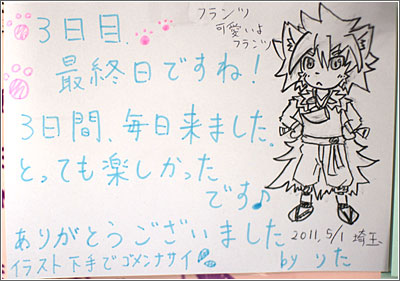 3日目.
フランツ
可愛いよ
フランツ
最終日ですね!
3日間、毎日来ました。
とっても楽しかった
です♪
ありがとうございました
2011.5/1 埼玉
イラスト下手でゴメンナサイ!
by りた